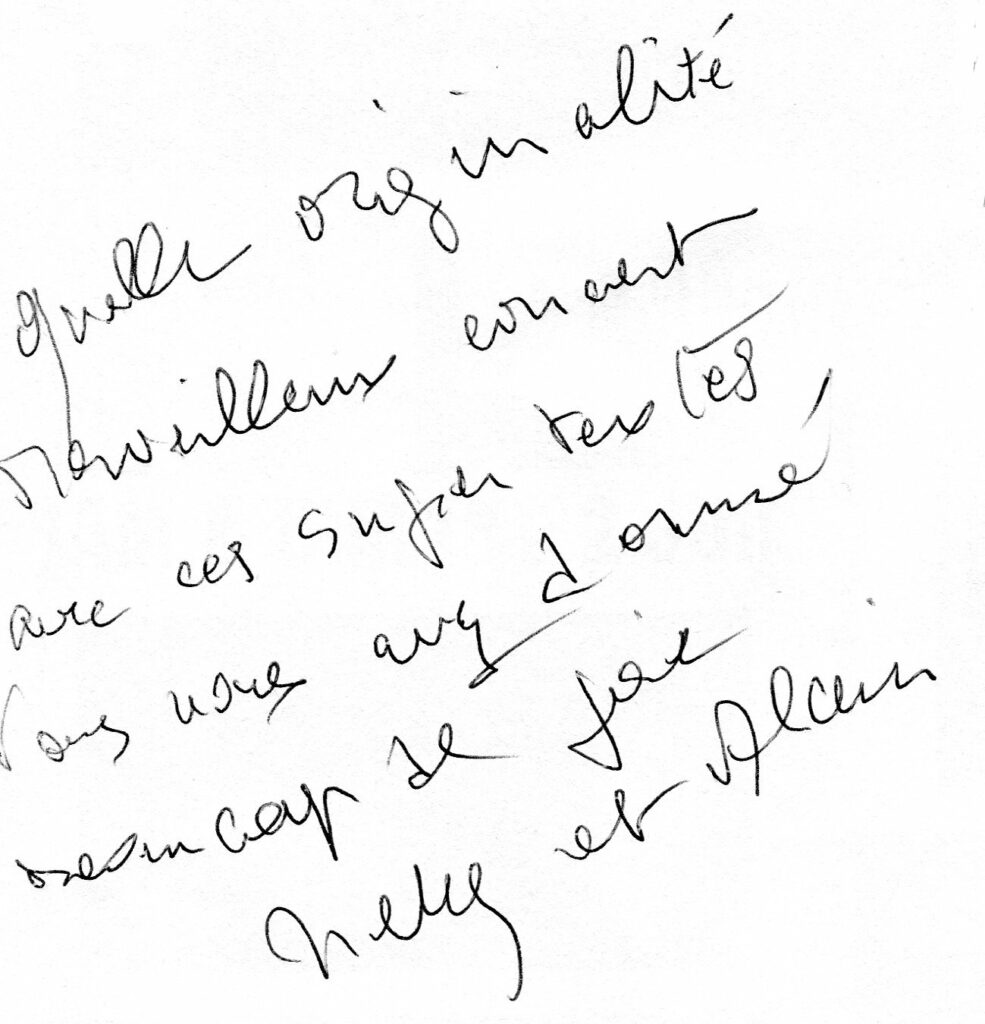 quelle originalité
Merveilleux concert
avec ces super textes
Vous nous avez donné
beaucoup de joie
Nelly et Alain